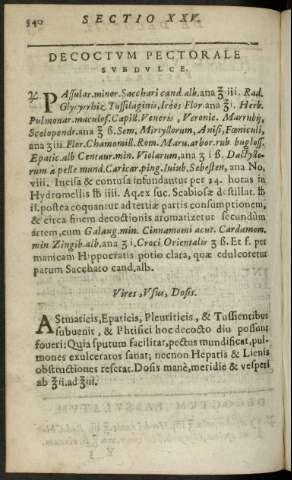 540 SECTIO XXV.
DECOCTVM PECTORALE
SVBDVLCE.
℞. PAssular. minor. Sacchari cand. alb. ana ℥. iii. Rad.
Glycyrrhiz. Tussilaginis, Ireos Flor. ana ℥ i. Herb.
Pulmonar. maculos. Capill. Veneris, Veronic. Marrubij,
Scolopendr. ana ℥ ß. Sem. Mirtyllorum, Anisi, Fœniculi,
ana ʒ iii. Flor. Chamomill. Rom. Maru. arbor. rub. bugloss.
Epatic. alb Centaur. min. Violarum, ana ʒ i ß. Dactylo-
rum a pelle mund. Caricar. ping. Iuiub. Sebesten, ana No.
viii. Incisa & contusa infundantur per 24. horas in
Hydromellis ℔ iiii. Aq. ex suc. Scabiosæ destillat. ℔
ii. postea coquantur ad tertiæ partis consumptionem,
& circa finem decoctionis aromatizetur secundùm
artem, cum Galang. min. Cinnamomi acut. Cardamom.
min Zingib. alb. ana ʒ i. Croci Orientalis ʒ ß. Et f. per
manicam Hippocratis potio clara, quæ edulcoretur
parum Saccharo cand. alb.
Vires, Vsus, Dosis.
AStmaticis, Epaticis, Pleuriticis, & Tussientibus
subuenit, & Phtisici hoc decocto diu possunt
foueri: Quia sputum facilitat, pectus mundificat, pul-
mones exulceratos sanat; necnon Hepatis & Lienis
obstructiones reserat. Dosis manè, meridie & vesperi
ab ℥ii. ad ℥iii.